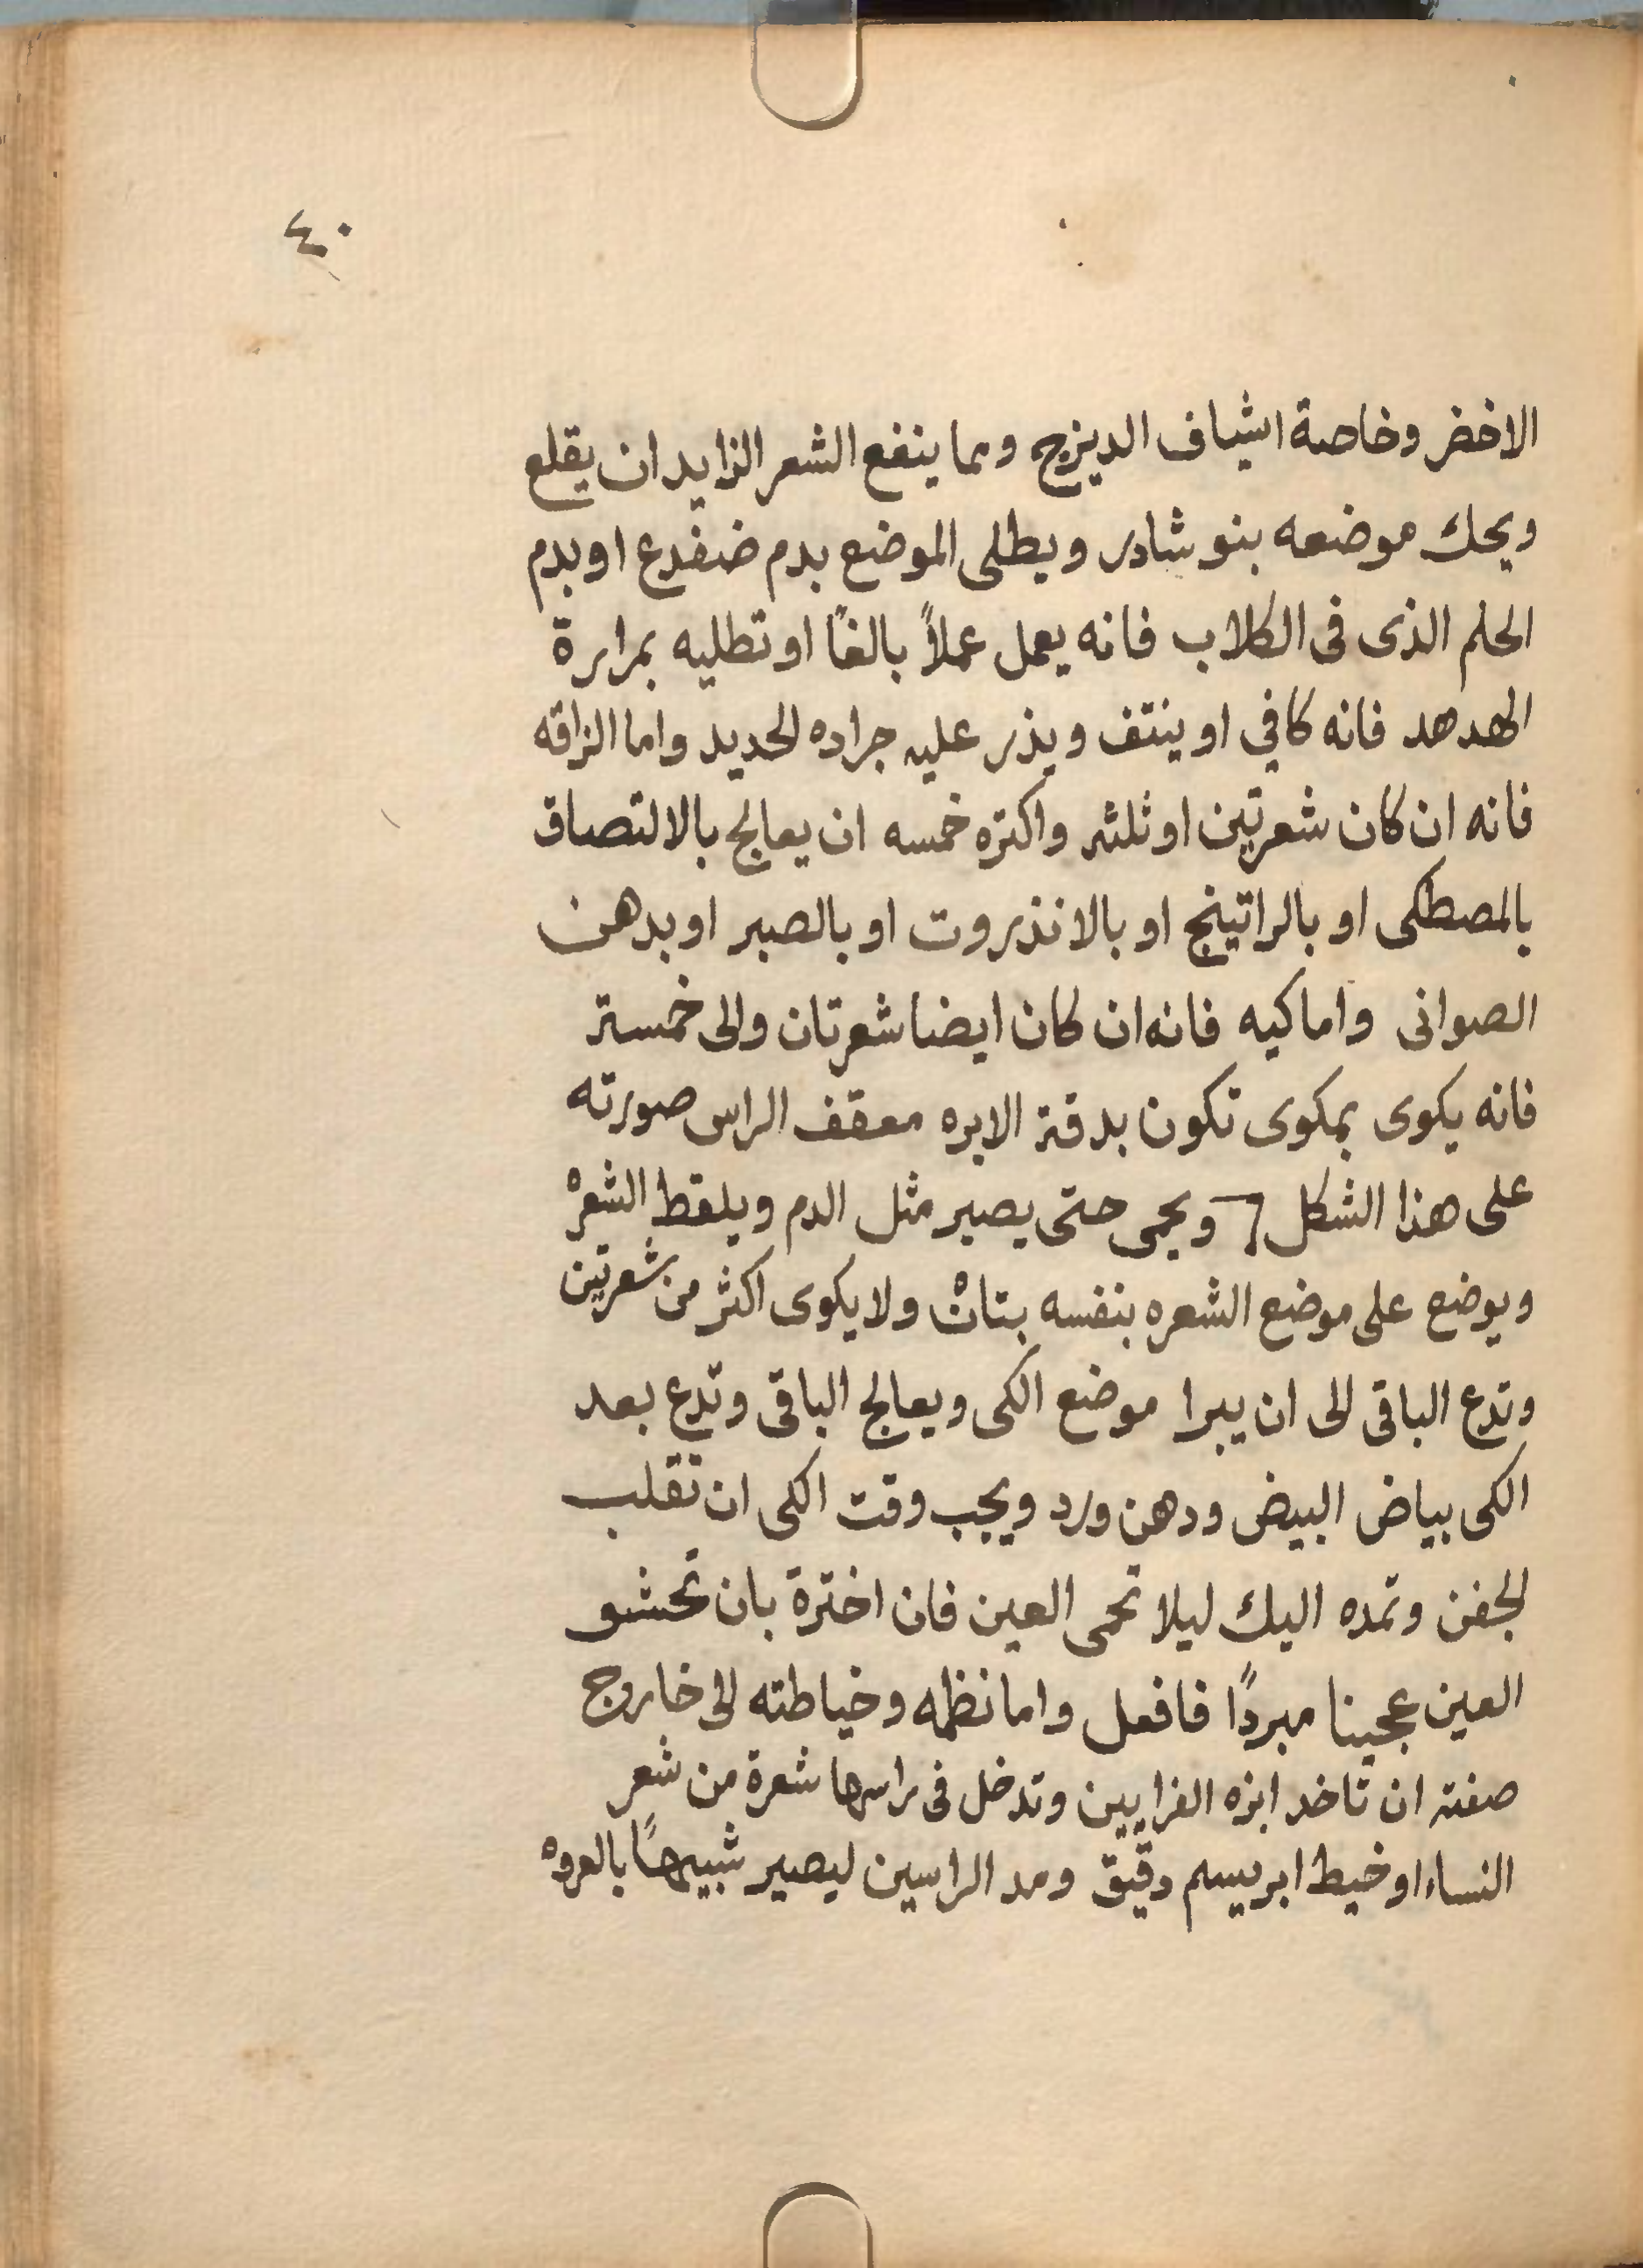 ٤٠
الاخضر وخاصة اشياف الديزج ومما ينفع الشعر الزايد ان يقلع
ويحك موضعه بنوشادر ويطلى الموضع بدم ضفدع او بدم
الحلم الذى فى الكلاب فانه يعمل عملاً بالغاً او تطليه بمرارة
الهدهد فانه كافي او ينتف ويذر عليه جراده الحديد واما الزاقه
فانه ان كان شعرتين او ثلثه واكتره خمسه ان يعالج بالالتصاق
بالمصطكى او بالراتينج او بالانذروت او بالصبر او بدهن
الصوانى واما كيه فانه ان كان ايضا شعرتان والى خمسة
فانه يكوى بمكوى تكون بدقة الابره معقف الراس صورته
على هذا الشكل ويحمى حتى يصير مثل الدم ويلقط الشعره
ويوضع على موضع الشعره بنفسه ولا يكوى اكثر من شعرتين
وتدع الباقى الى ان يبرا موضع الكى ويعالج الباقى وتدع بعد
الكى بياض البيض ودهن ورد ويجب وقت الكى ان تقلب
الجفن وتمده اليك ليلا تحمى العين فان اخترة بان تحشو
العين عجينا مبردًا فافعل واما نظمه وخياطته الى خاروج
صفته ان تاخد ابره الفرايين وتدخل فى راسها شعرة من شعر
النساء او خيط ابريسم دقيق ومد الراسين ليصير شبيهاً بالعروه